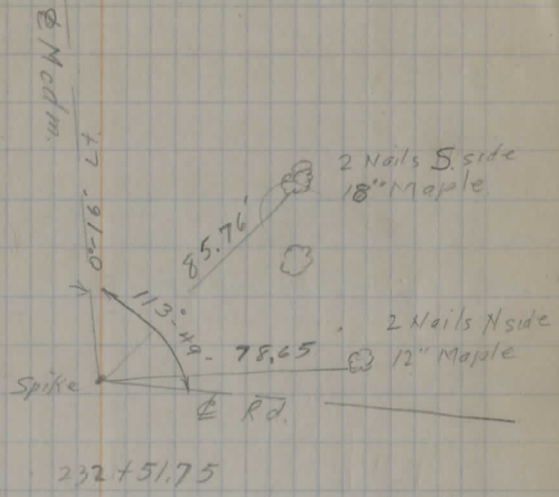 ℄ Mcdm.
Lt. 91-0
2 Nails S. side
18" Maple
85.76'
113°-49-
78,65
2 Nails N side
12" Maple
Spike
℄ Rd.
232+51.75